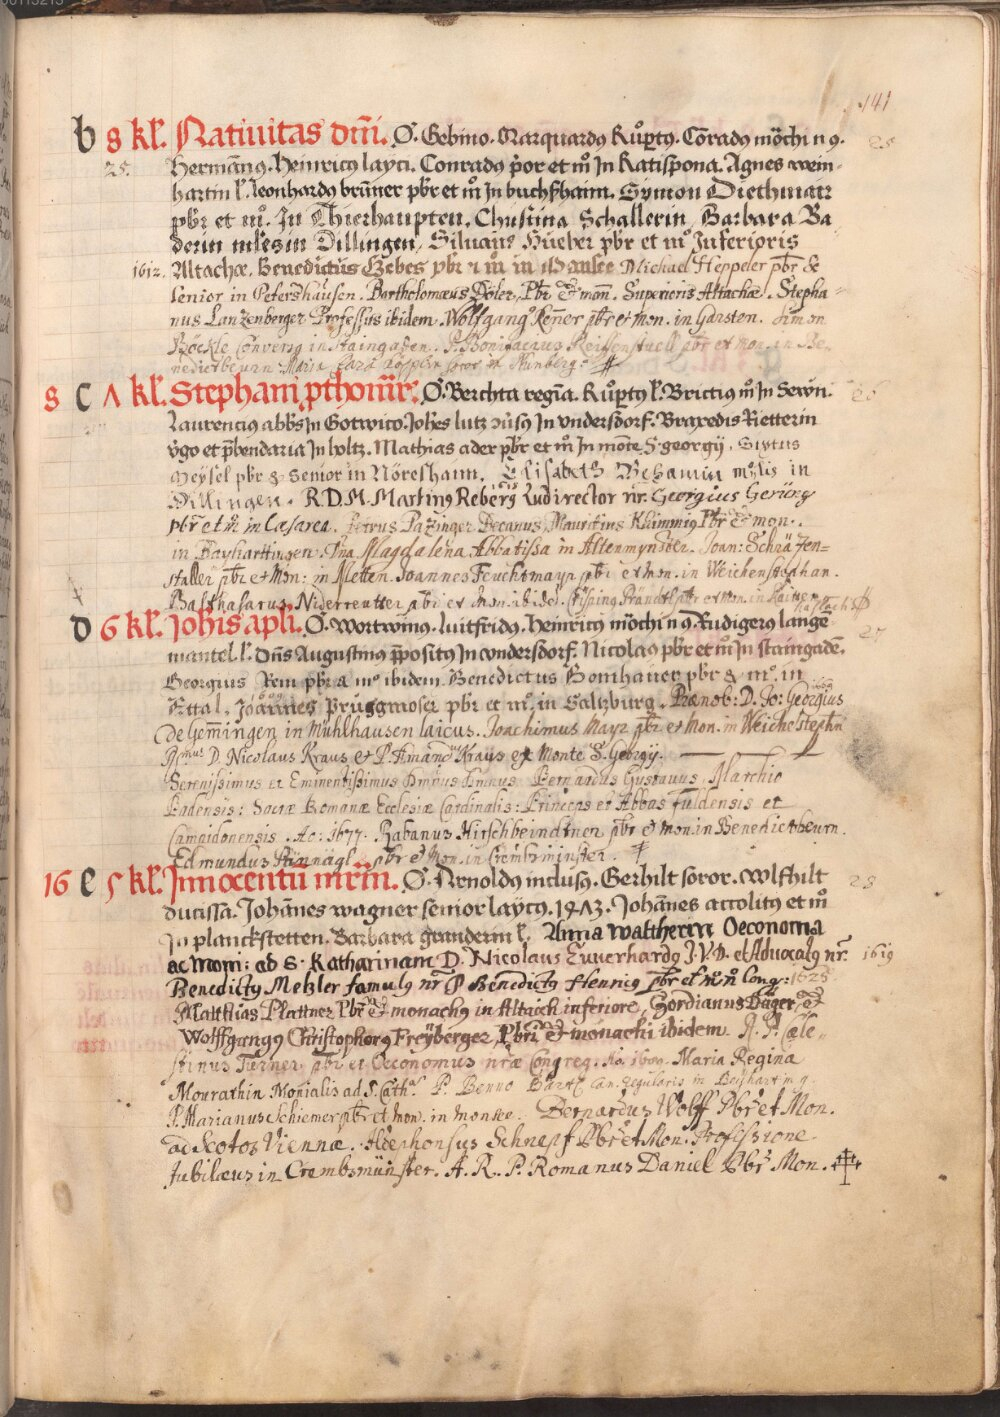 141
b 8 kl. Natiuitas dm̄i. O. Gebino. Marquardꝰ Ruͦptꝰ. Cōradꝰ mōchi n 9. 25
25. Hermānꝰ. Heinricꝰ layci. Conradꝰ p̄or et m̊ Jn Ratispona. Agnes wein-
hartin l. leonhardꝰ brūner pb̄r et m̊ Jn buchshaim. Symon Diethmair
pb̄r et m̊. Jn Thierhaupten. Christina Schallerin, Barbara Ba
derin in Dillingen, Siluanꝰ Hueber pb̄r et m̊ Inferioris
1612. Altachæ. Benedictus pb̄r m̊ in Mansee Michael Heppeler pb̄r &
Senior in Petershausen. Bartholomæus Döler, Pb̄r & mon. Superioris Altachæ. Stepha-
nus Lanzenberger Professus ibidem. Wolfgangꝰ Ren̄er pb̄r et Mon. in Garsten. Simon
Böckle Conversꝰ in Staingaden. P. Bonifacius Reiffenstuell pb̄r et Mon. in Be-
nedictbeurn. Maria in Nürnberg.
8 c Λ kl. Stephani pthom̄r. O. Berchta regīa. Ruͦptꝰ l. Brictiꝰ m̊ Jn Sewn. 26
Laurenciꝰ abb̄s Jn Gotwico. Joh̄es lutz Jn vndersdorf. Rietterin
v̊go et p̄bendaria Jn holtz. Mathias ader pb̄r et m̊ Jn mōte S. georgij. Sixtus
Meysel pb̄r & Senior in Nöreshaim. Elisabeth in
Dillingen. R.D.M. Martinꝰ Ludirector nr̄. Georgius Gerüng
pb̄r et m̊ in Cæsarea. Petrus Pazinger Decanus, Mauritius Khimmig Pb̄r & mon.
in Bayharttingen. Magdalena Abbatissa in Altenmynster. Joan: Schräzen-
staller pb̄r et Mon: in Metten. Joannes Feuchtmayr pb̄r et Mon. in Weichenstephan.
Balthasarus Niderreutter pb̄r et Mon. ibid. Crispinꝰ Brändtl pb̄r et Mon. in
haslach
D 6 kl. Joh̄is apl̄i. O. Wortwinꝰ. Luitfridꝰ. Heinricꝰ mōchi n 9. Rudigerꝰ lange 27
mantel l. Dn̄s Augustinꝰ p̄positꝰ Jn vndersdorf. Nicolaꝰ pb̄r et m̊ Jn staingadē.
Georgius Rem pb̄r & m̊ ibidem. Benedictus Bomhauer pb̄r & m̊. in
Ettal. Joannes Prugmoser pb̄r et m̊. in Saltzburg. Prænob: D. Jo: Georgius
de Gem̄ingen in Mühlhausen laicus. Joachimus Mayr pb̄r et Mon. in Weichēstephn
Rmus D. Nicolaus Kraus et P. Amandꝰ Kraus ex Monte S. Georgij.
Serenissimus et Eminentissimus Dn̄us Dn̄us Bernardus Gustauus, Marchio
Badensis: Sacræ Romanæ Ecclesiæ Cardinalis: Princeps et Abbas Fuldensis et
Campidonensis. Ao: 1677. Rabanus Hirschbeindtner pb̄r & Mon. in Benedictbeurn.
Edmundus pb̄r & Mon. in Crembsminster.
16 e 5 kl. Innocentū mr̄m. O. Arnoldꝰ inclusꝰ. Gerhilt soror. Wlfhilt 28
ducissa. Johānes wagner senior laycꝰ. 1473. Johānes accolitꝰ et m̊
Jn planckstetten. Barbara granderin l. Anna Waltherin Oeconoma
ac Mon: ad S. Katharinam D. Nicolaus Zuuerhardꝰ J.V.D. et Aduocatꝰ nr̄. 1619
Benedictꝰ Metzler famulꝰ nr̄ P Benedictꝰ Henriꝰ pb̄r et m̊ 1628
Matthias Plattner Pb̄r & monachꝰ in Altaich inferiore, Gordianus Däger, &
Wolffgangꝰ Christophorꝰ Freyberger Pb̄ri & monachi ibidem. R. P. Cæle-
stinus Turner pb̄r et Oeconomus nr̄æ Congreg. Ao. 1600. Maria Regina
Mourathin Monialis ad S. Cath. P. Benno Bartl Can. Regularis in Beyhartīg.
P. Marianus Schiemer pb̄r et Mon. in Monsee. Bernardus Wolff Pb̄r et Mon.
ad Scotos Viennæ. Ildephonsus Schnepf Pb̄r et Mon. Professione
Jubilæus in Crembsmünster. A. R. P. Romanus Daniel Pb̄r Mon.